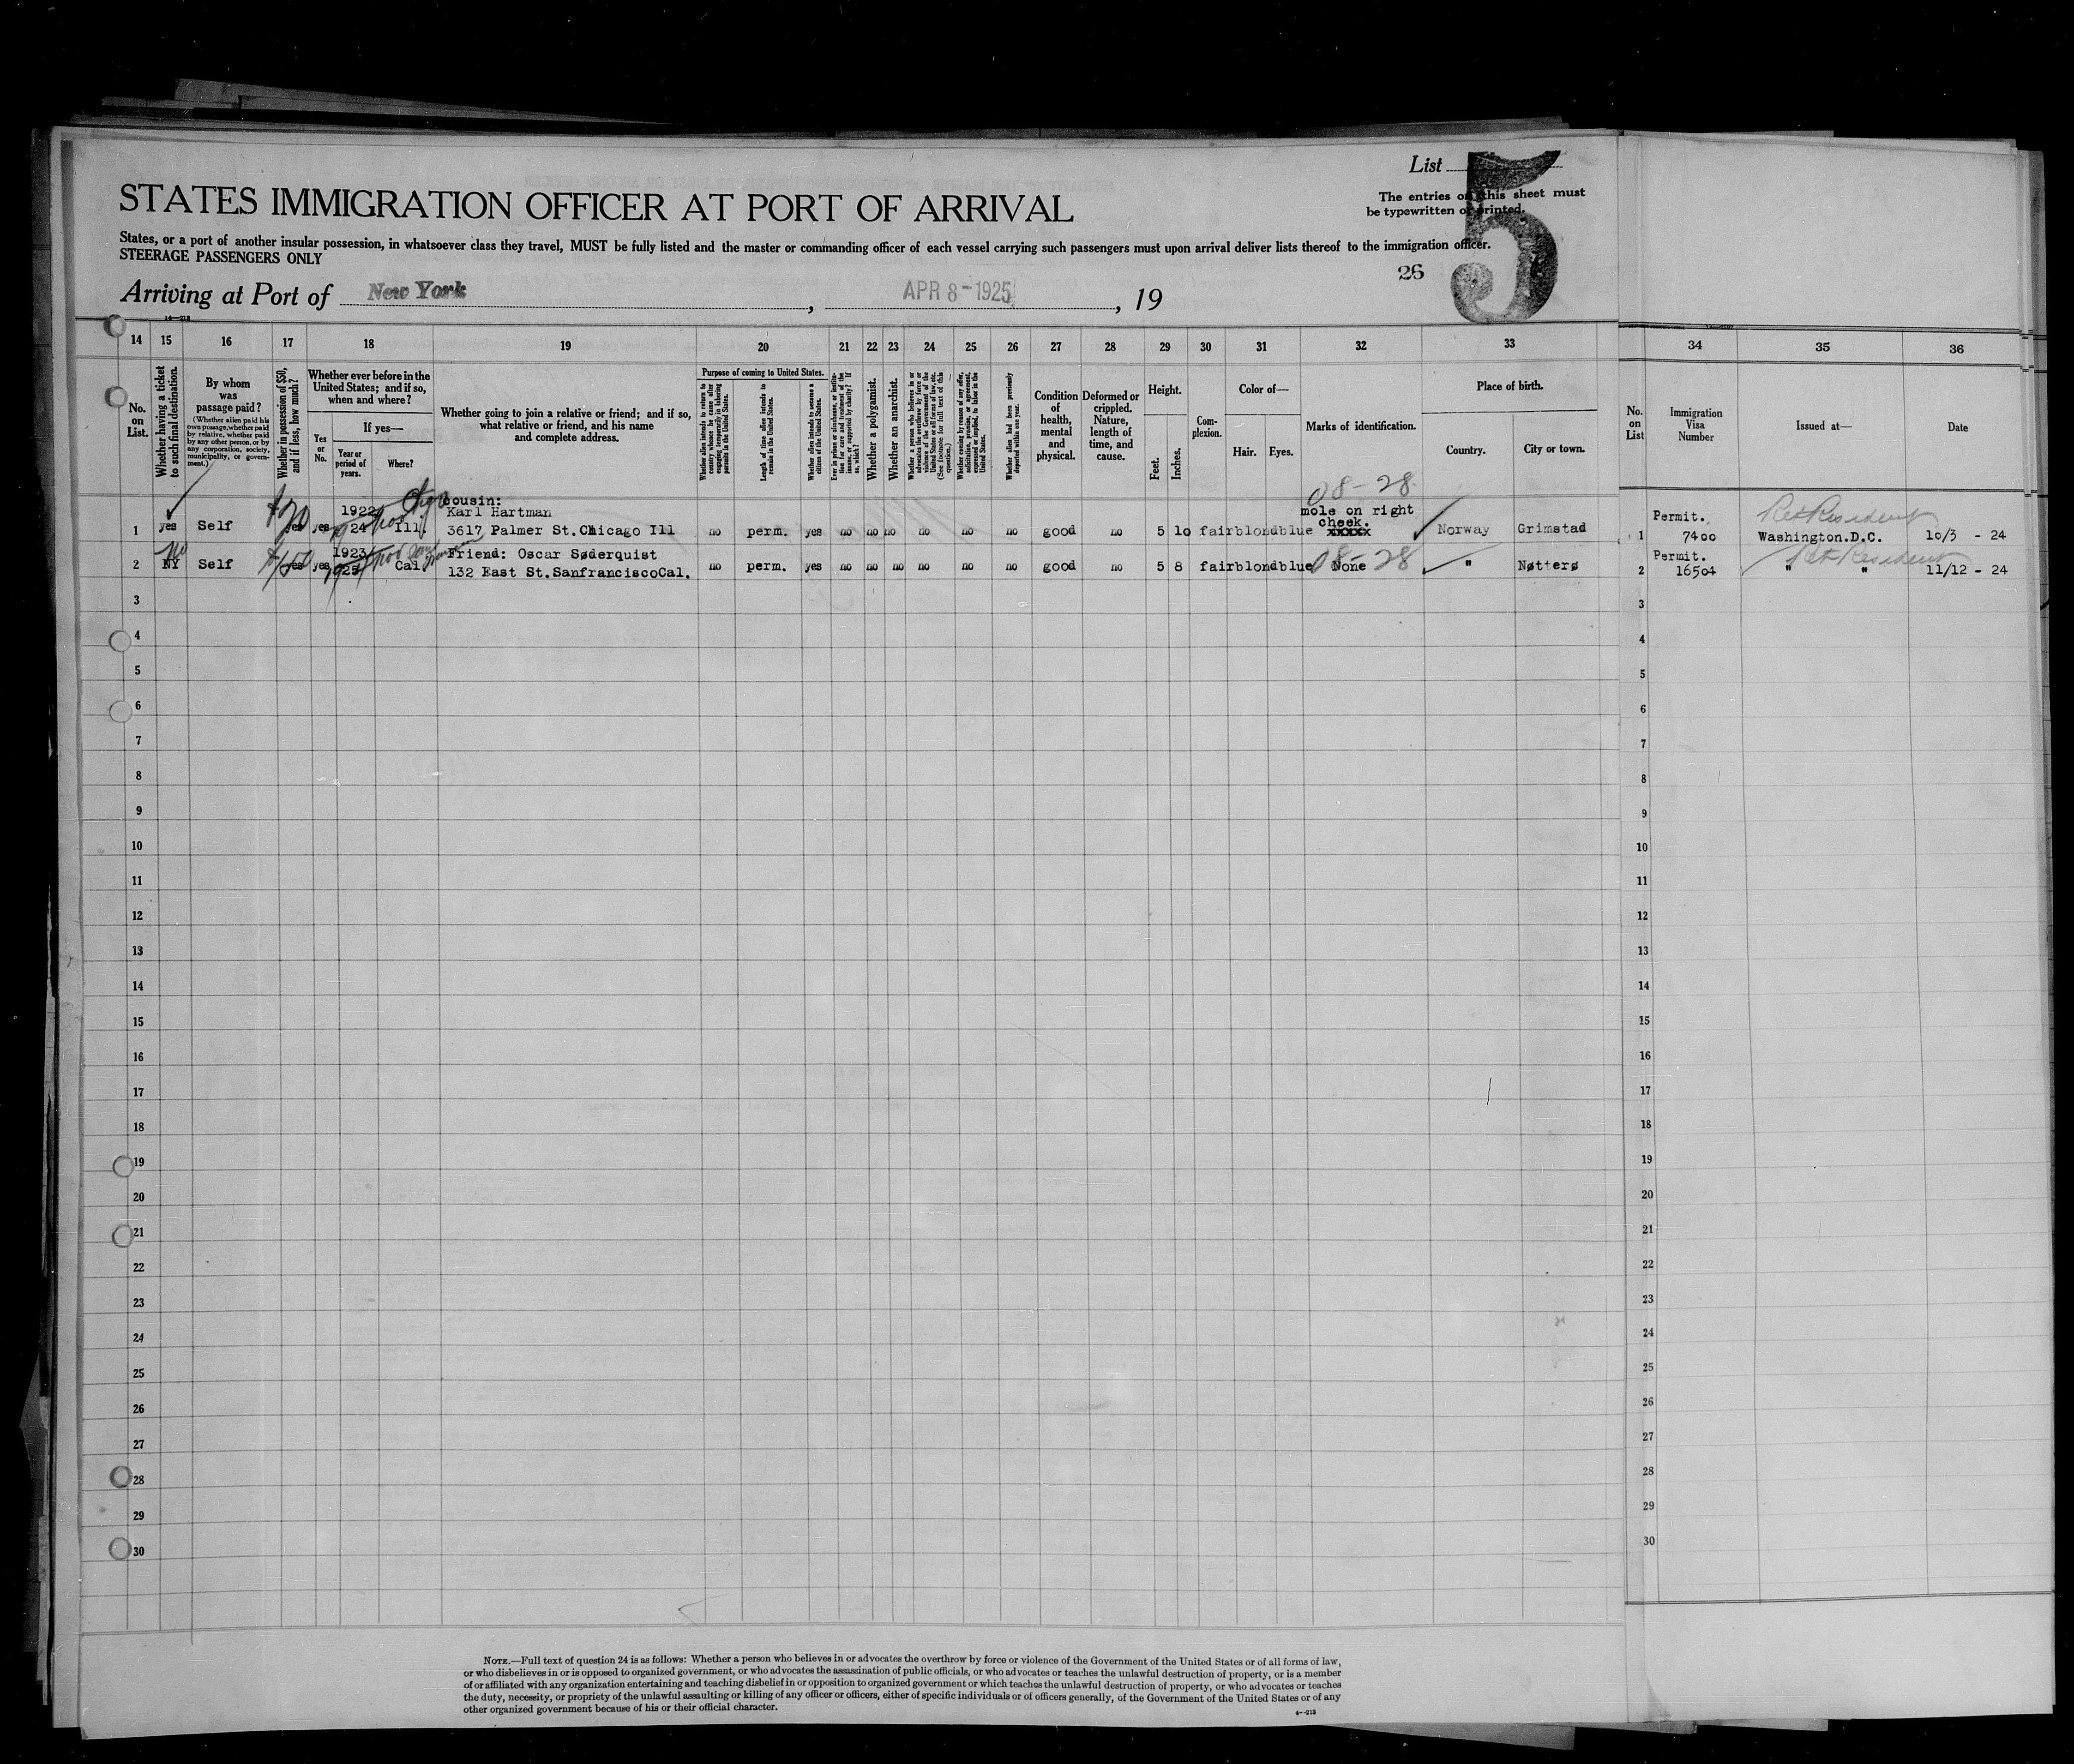 List
5
The entries on this sheet must
be typewritten or printed.
STATES IMMIGRATION OFFICER AT PORT OF ARRIVAL
States, or a port of another insular possession, in whatsoever class they travel, MUST be fully listed and the master or commanding officer of each vessel carrying such passengers must upon arrival deliver lists thereof to the immigration officer.
STEERAGE PASSENGERS ONLY
26
Arriving at Port of New York, APR 8-1925, 19
14 15 16 17 18 19 20 21 22 23 24 25 26 27 28 29 30 31 32 33 34 35 36
No. on List.
Whether having a ticket to such final destination.
By whom was passage paid?
(Whether alien paid his own passage, whether paid by relative, whether paid by any other person, or by any corporation, society, municipality, or government.)
Whether in possession of $50, and if less, how much?
Whether ever before in the United States; and if so, when and where?
Yes or No.
If yes—
Year or period of years.
Where?
Whether going to join a relative or friend; and if so, what relative or friend, and his name and complete address.
Purpose of coming to United States.
Whether alien intends to return to country whence he came after engaging temporarily in laboring pursuits in the United States.
Length of time alien intends to remain in the United States.
Whether alien intends to become a citizen of the United States.
Ever in prison or almshouse, or institution for care and treatment of the insane, or supported by charity? If so, which?
Whether a polygamist.
Whether an anarchist.
Whether a person who believes in or advocates the overthrow by force or violence of the Government of the United States or all forms of law, etc. (See footnote for full text of this question.)
Whether coming by reason of any offer, solicitation, promise, or agreement, expressed or implied, to labor in the United States.
Whether alien had been previously deported within one year.
Condition of health, mental and physical.
Deformed or crippled. Nature, length of time, and cause.
Height.
Feet.
Inches.
Complexion.
Color of—
Hair. Eyes.
Marks of identification.
Place of birth.
Country. City or town.
No. on List
Immigration Visa Number
Issued at—
Date
08-28
cousin:
1922 Karl Hartman mole on right Permit. Ret Resident
1 yes Self $20 yes yes 1924 Ill. 3617 Palmer St.Chicago Ill no perm. yes no no no no no no good no 5 10 fair blond blue cheek. xxxxx Norway Grimstad 1 7400 Washington.D.C. 10/3 - 24
no 1923 Friend: Oscar Søderquist Permit. Ret Resident
2 NY Self $150 yes yes 1925 Cal. 132 East St.SanfranciscoCal. no perm. yes no no no no no no good no 5 8 fair blond blue None 08-28 " Nøtterø 2 16504 " " 11/12 - 24
3 3
4 4
5 5
6 6
7 7
8 8
9 9
10 10
11 11
12 12
13 13
14 14
15 15
16 16
17 17
18 18
19 19
20 20
21 21
22 22
23 23
24 24
25 25
26 26
27 27
28 28
29 29
30 30
NOTE.—Full text of question 24 is as follows: Whether a person who believes in or advocates the overthrow by force or violence of the Government of the United States or of all forms of law,
or who disbelieves in or is opposed to organized government, or who advocates the assassination of public officials, or who advocates or teaches the unlawful destruction of property, or is a member
of or affiliated with any organization entertaining and teaching disbelief in or opposition to organized government or which teaches the unlawful destruction of property, or who advocates or teaches
the duty, necessity, or propriety of the unlawful assaulting or killing of any officer or officers, either of specific individuals or of officers generally, of the Government of the United States or of any
other organized government because of his or their official character.